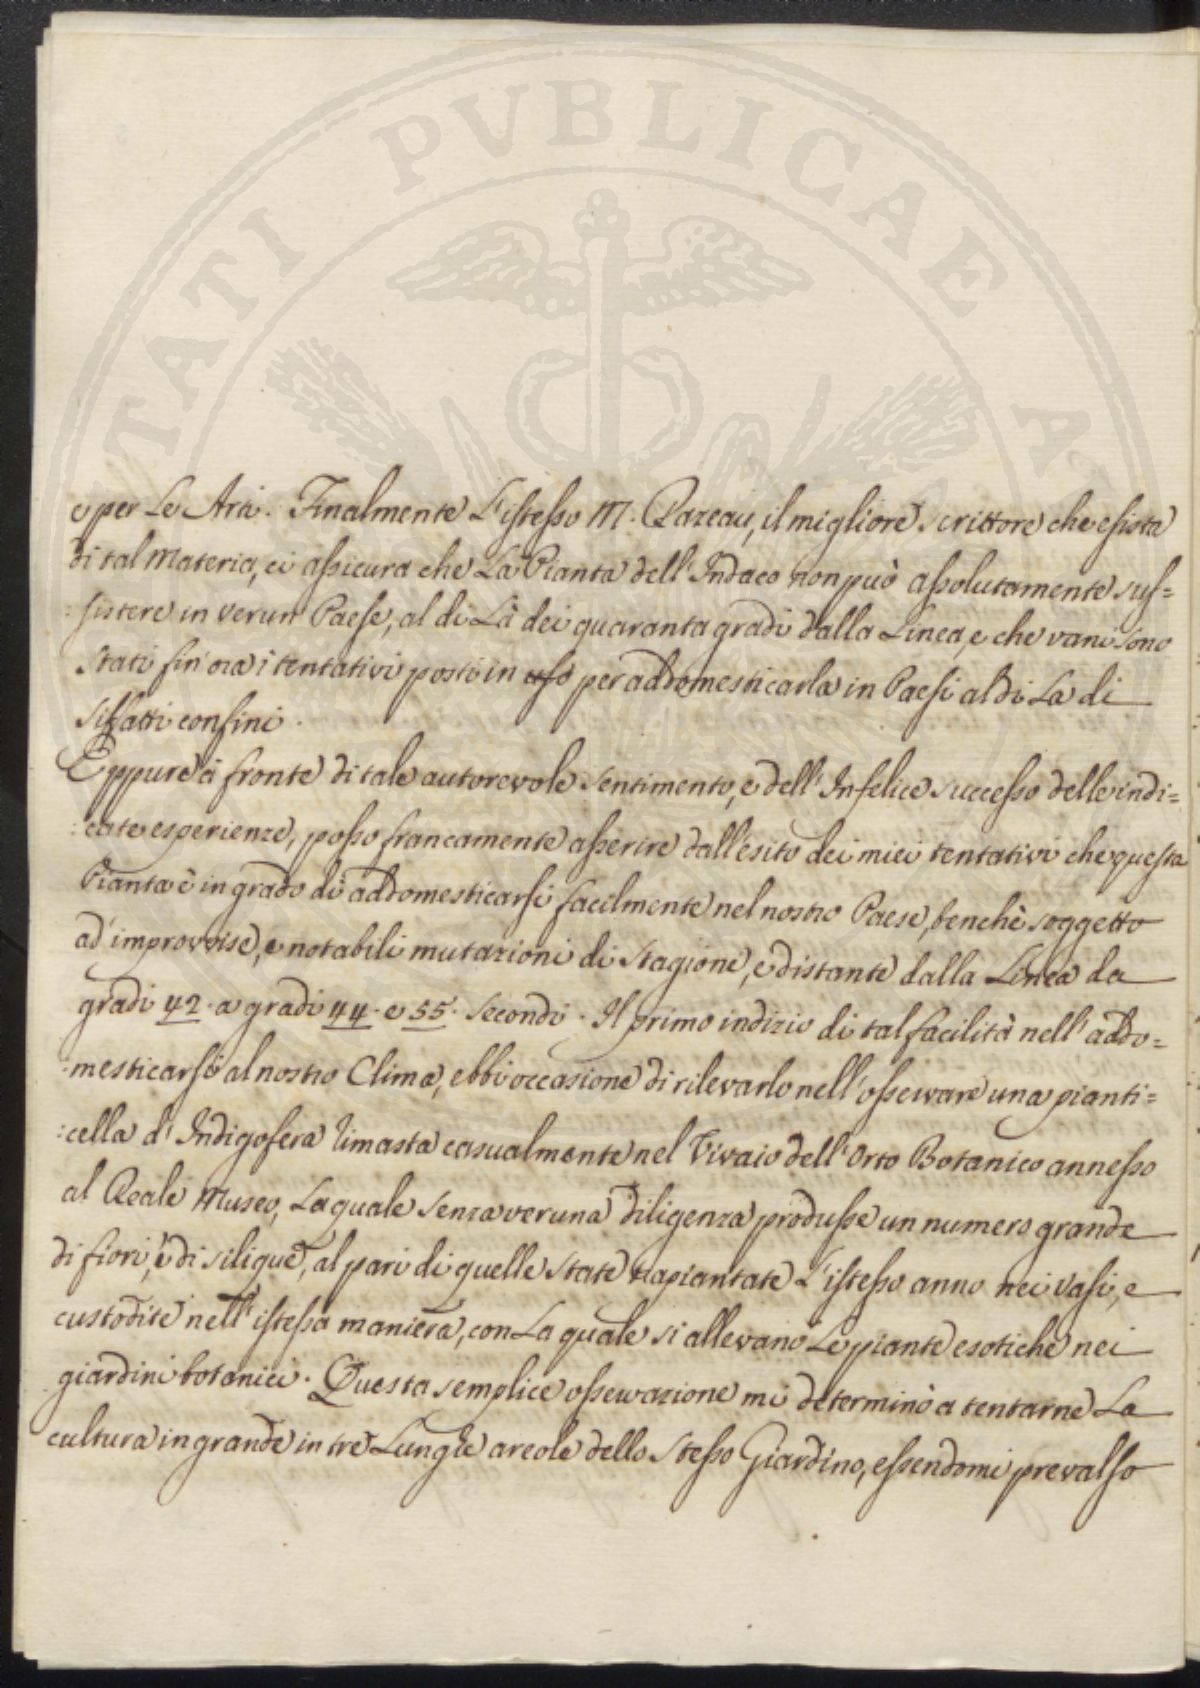 TATI PUBLICAE A
e per Le Arti. Finalmente L'istesso M. Qazeau, il migliore scrittore che esista
di tal Materia, ci assicura che La Pianta dell'Indaco non può assolutamente sus=
:sistere in verun Paese, al di Là dei quaranta gradi dalla Linea, e che vani sono
Stati fin'ora i tentativi posti in uso per addomesticarla in Paesi al di La di
siffatti confini.
Eppure à fronte di tale autorevole sentimento, e dell'Infelice successo delle indi=
:cate esperienze, posso francamente asserire dall'esito dei miei tentativi che questa
Pianta è in grado di addomesticarsi facilmente nel nostro Paese, benchè soggetto
ad'improvvise, e notabili mutazioni di Stagione, e distante dalla Linea da
gradi 42. a gradi 44. e 55. Secondi. Il primo indizio di tal facilità nell'addo=
:mesticarsi al nostro Clima, ebbi occasione di rilevarlo nell'osservare una pianti=
:cella d'Indigofera rimasta casualmente nel Vivaio dell'Orto Botanico annesso
al Reale Museo, La quale senza veruna diligenza produsse un numero grande
di fiori, e di silique, al pari di quelle State trapiantate L'istesso anno nei Vasi, e
custodite nell'istessa maniera, con La quale si allevano Le piante esotiche nei
giardini botanici. Questa semplice osservazione mi determinò a tentarne La
cultura in grande in tre Lunghe areole dello Stesso Giardino, essendomi prevalso